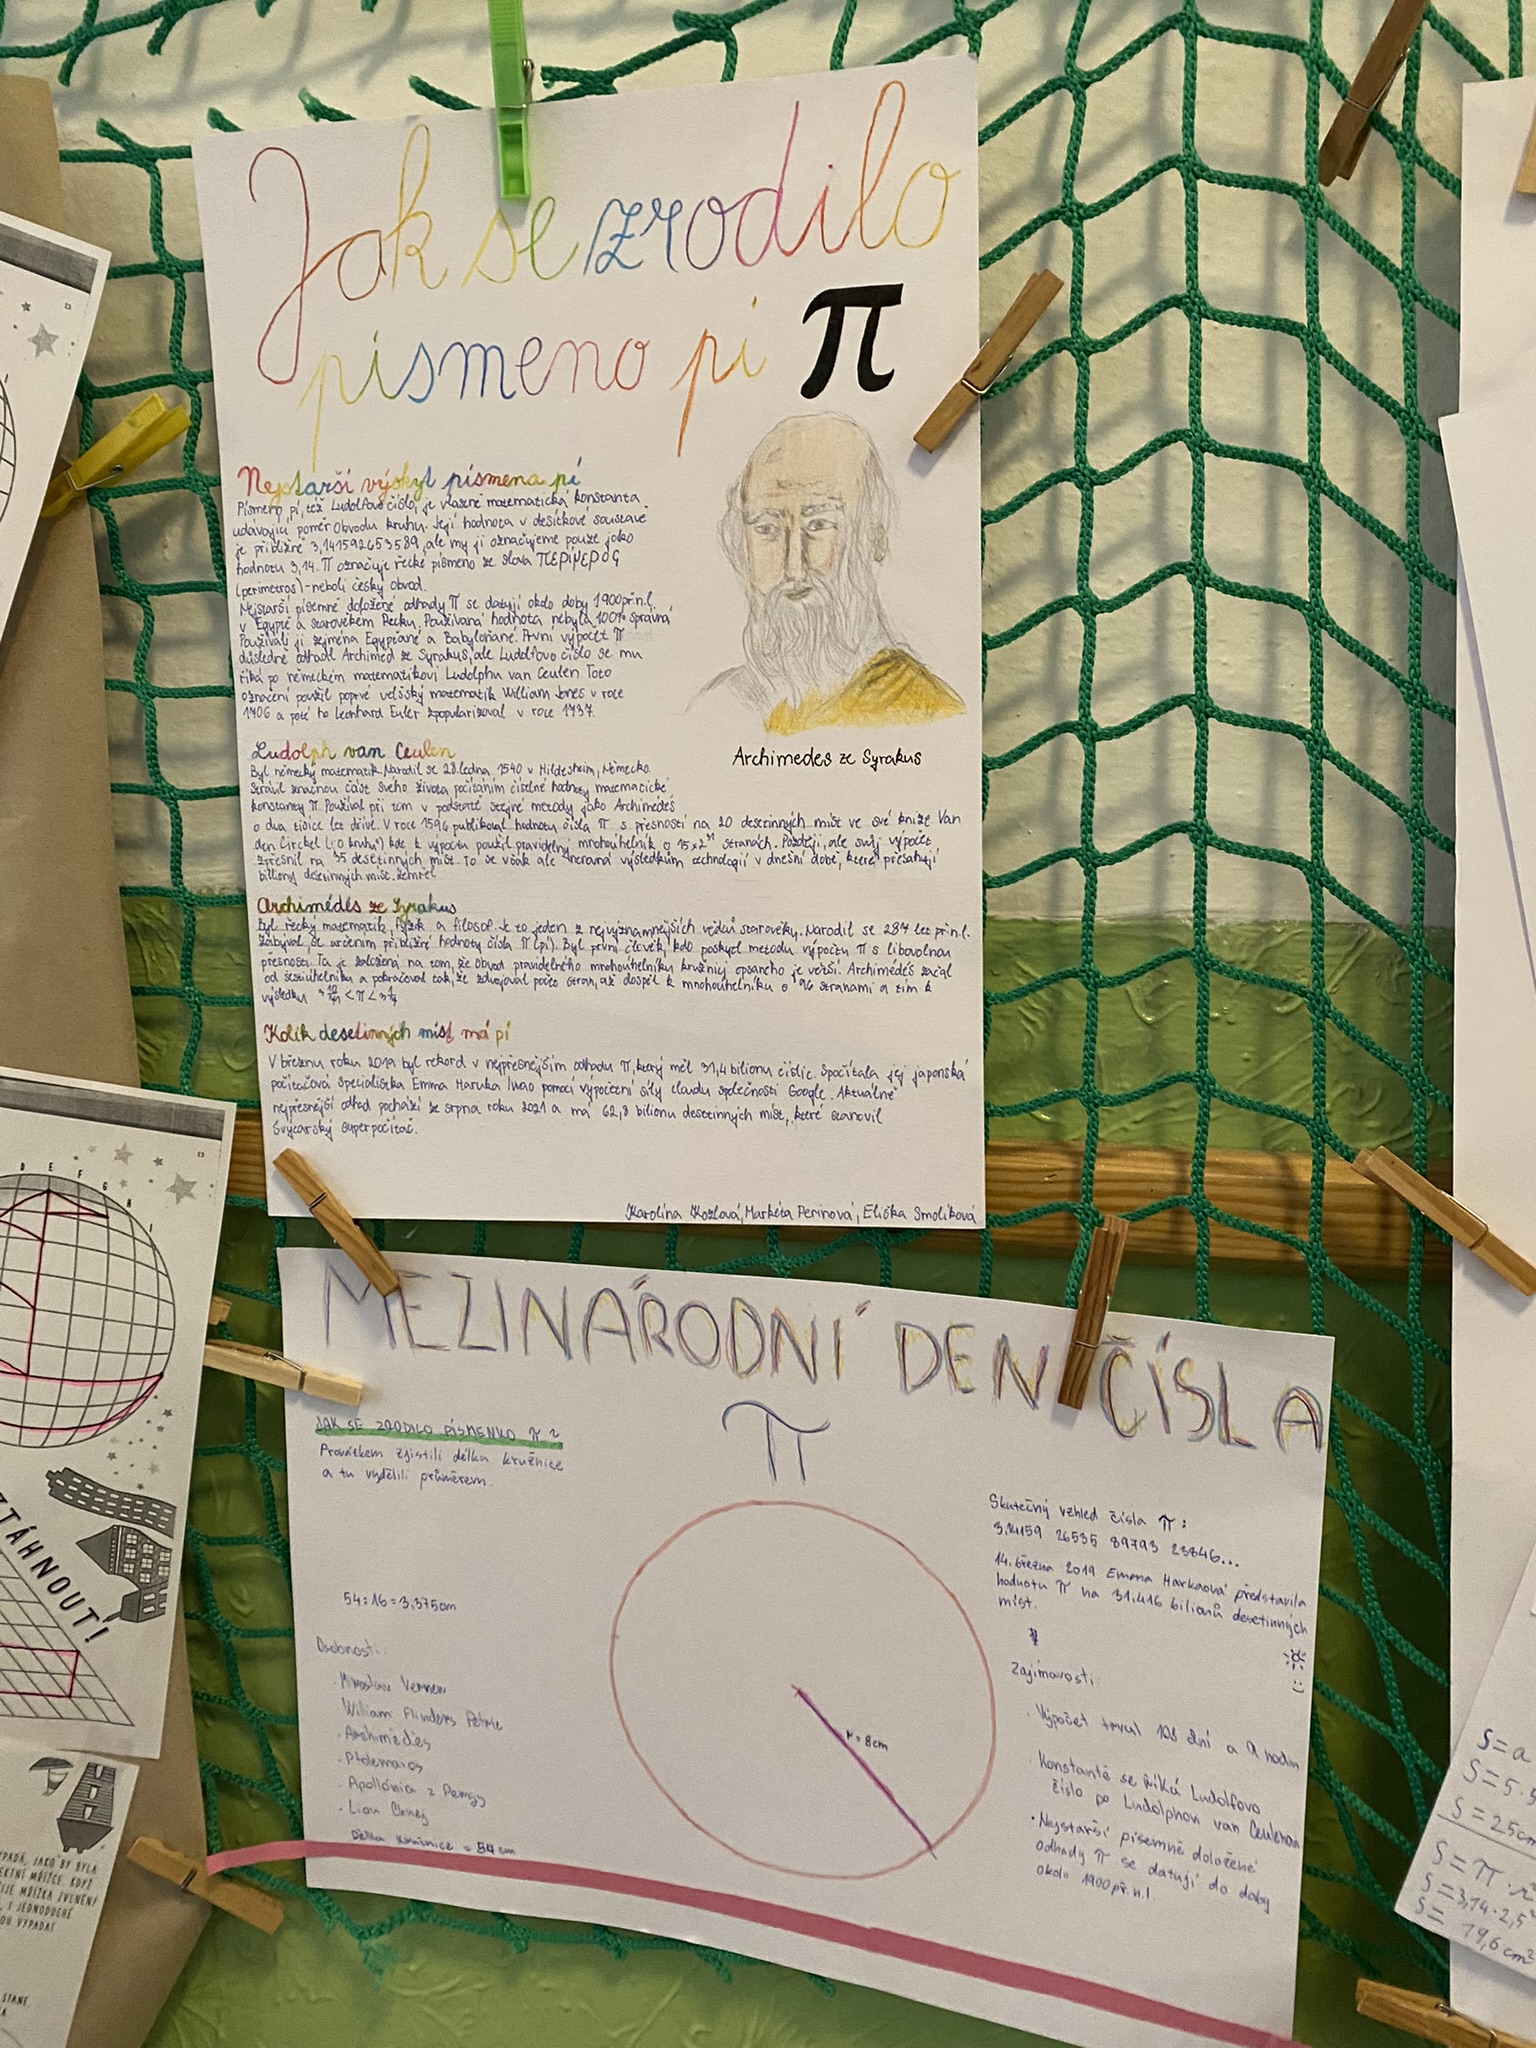 Jak se zrodilo
písmeno pi π
Nejstarší výskyt písmena pí
Písmeno pí, též Ludolfovo číslo, je vlasně matematická konstanta
udávající poměr obvodu kruhu. Její hodnota v desítkové soustavě
je přibližně 3,141592653589, ale my ji označujeme pouze jako
hodnotu 3,14. π označuje řecké písmeno ze slova
(perimetros)-neboli česky obvod.
Nejstarší písemně doložené odhady π se datují okolo doby 1900př.n.l.
v Egyptě a starověkém Řecku. Používaná hodnota nebyla 100% správná
Používali ji zejména Egypťané a Babyloňané. První výpočet π
důsledně odhadl Archiméd ze Syrakus, ale Ludolfovo číslo se mu
říká po německém matematikovi Ludolphu van Ceulen. Toto
označení použil poprvé velšský matematik William Jones v roce
1706 a poté ho Leonhard Euler zpopularizoval v roce 1737.
Archimedes ze Syrakus
Ludolph van Ceulen
Byl německý matematik. Narodil se 28. ledna 1540 v Hildesheim, Německo.
Strávil značnou část svého života počítáním číselné hodnoty matematické
konstanty π. Používal při tom v podstatě stejné metody jako Archimédés
o dva tisíce let dříve. V roce 1596 publikoval hodnotu čísla π s přesností na 20 desetinných míst ve své knize Van
den Circkel (:o kruhu) kde k výpočtu použil pravidelný mnohoúhelník o stranách. Později, ale svůj výpočet
zpřesnil na 35 desetinných míst. To se však ale nerovná výsledkům technologií v dnešní době, které přesahují
billiony desetinných míst. Zemřel
Archimédés ze Syrakus
Byl řecký matematik, fyzik a filosof. Je to jeden z nejvýznamnějších vědců starověku. Narodil se 287 let př.n.l.
Zabýval se určením přibližné hodnoty čísla π (pí). Byl první člověk, kdo poskytl metodu výpočtu π s libovolnou
přesností. Ta je založená na tom, že obvod pravidelného mnohoúhelníku kružnicí opsaného je větší. Archimédés začal
od šestiúhelníku a pokračoval tak, že zdvojoval počet stran, až dospěl k mnohoúhelníku o 96 stranami a tím k
výsledku 3 10/71 < π < 3 1/7
Kolik desetinných míst má pí
V březnu roku 2019 byl rekord v nejpřesnějším odhadu π, který měl 31,4 bilionu číslic. Spočítala jej japonská
počítačová specialiska Emma Haruka Iwao pomocí výpočetní síly cloudu společnosti Google. Aktuálně
nejpřesnější odhad pochází ze srpna roku 2021 a má 62,8 bilionu desetinných míst, které stanovil
švýcarský superpočítač.
Karolína Kozlová, Markéta Perinová, Eliška Smolíková
MEZINÁRODNÍ DEN ČÍSLA
π
JAK SE ZRODILO PÍSMENKO π ?
Provázkem zjistili délku kružnice
a tu vydělili průměrem.
54:16=3,375cm
Osobnosti:
· William Flinders Petrie
· Archimédés
· Ptolemaios
· Apollónia z Pergy
Délka kružnice = 54 cm
r = 8cm
Skutečný vzhled čísla π:
3,14159 26535 89793 23846...
14. března 2019 Emma Harkaová představila
hodnotu π na 31,416 bilionů desetinných
míst.
Zajímavosti:
· Výpočet trval dní a hodin
· Konstantě se říká Ludolfovo
číslo po Ludolphovi van Ceulenovi
· Nejstarší písemně doložené
odhady π se datují do doby
okolo 1900 př.n.l.
D E F G H I
ZTÁHNOUT!
PADÁ, JAKO BY BYLA
EKTNÍ MŘÍŽCE. KDYŽ
UJE MŘÍŽKA ZVLNĚNÍ
, I JEDNODUCHÉ
OU VYPADAT
STANE,
S = a
S = 5·5
S = 25cm
S = π·r²
S = 3,14·2,5²
S = 19,6 cm²